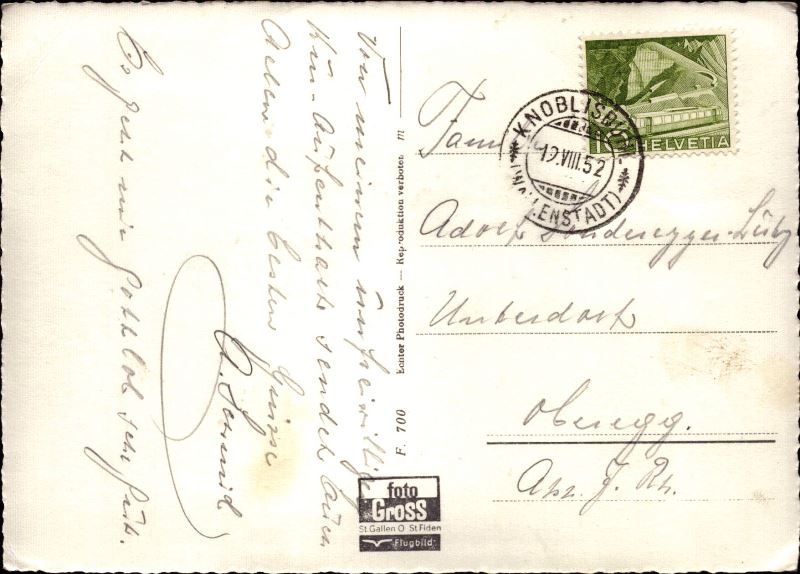 Von meinem unfreiwillige
Kur-Aufenthalt sendet Euch
Allen die besten Grüsse
A Schmid
Es geht mir Gottlob sehr gut.
F. 700 Echter Photodruck — Reproduktion verboten m
foto
Gross
St.Gallen O St Fiden
Flugbild
KNOBLISBÜHL
19.VIII.52
(WALLENSTADT)
10 HELVETIA
Fam
Adolf Sonderegger-Lutz
Unterdorf
Oberegg.
App. J. Rh.